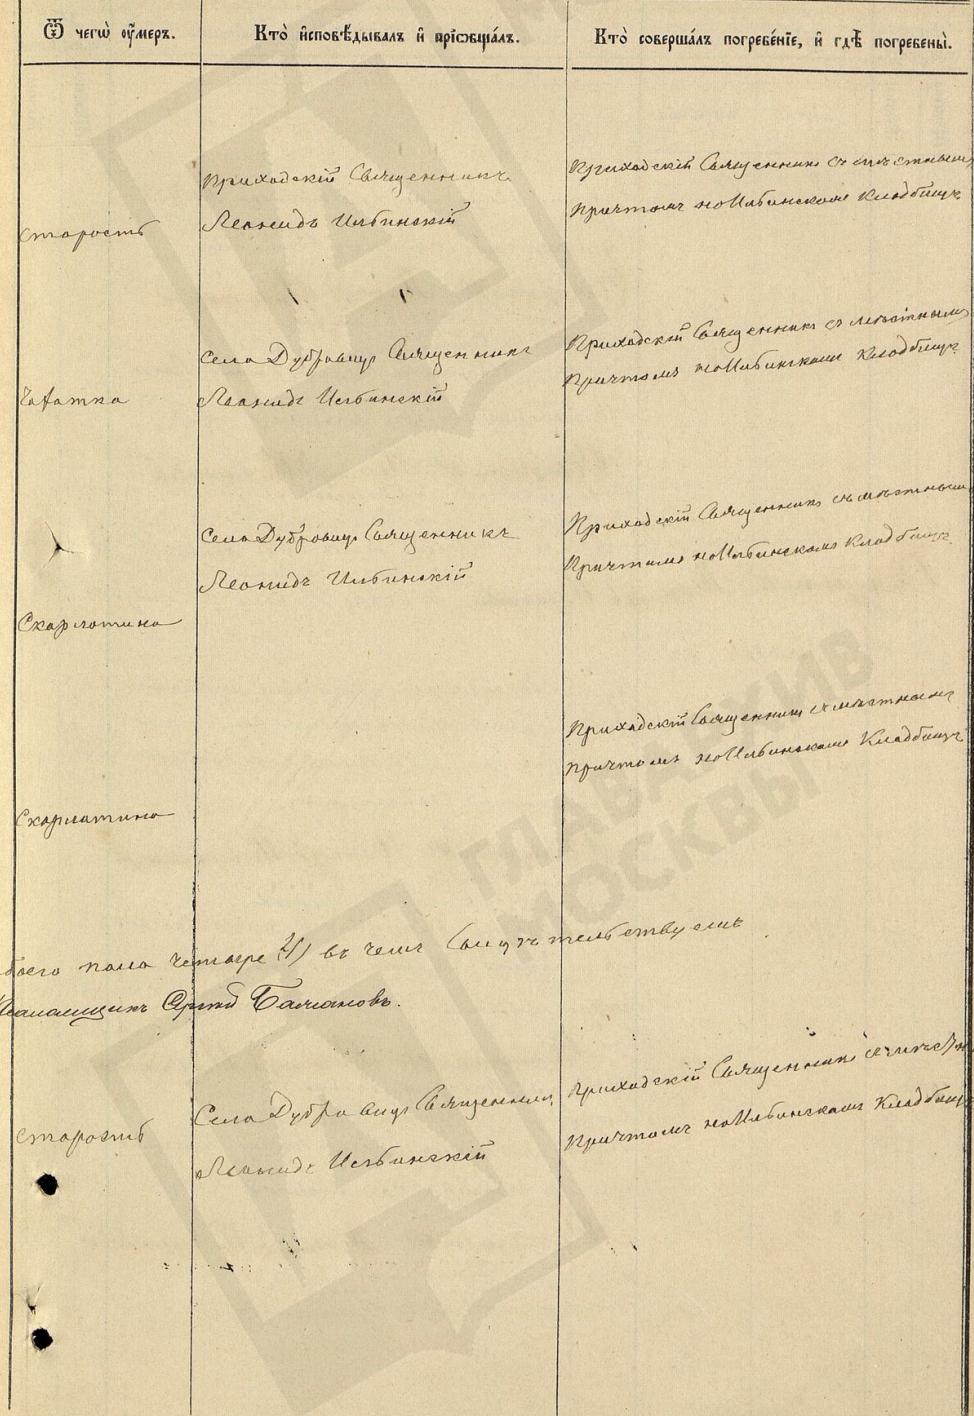 Ѿ чегѡ оу҆́меръ.
Кто̀ и҆сповѣ́дывалъ и҆ прїѡбща́лъ.
Кто̀ соверша́лъ погребе́нїе, и҆ гдѣ̀ погребены̀.
старость
Приходскій Священникъ
Леонидъ Ильинскій
Приходскій Священникъ съ мѣстнымъ
Причтомъ на Ильинскомъ Кладбищѣ
Чахотка
Села Дубровицъ Священникъ
Леонидъ Ильинскій
Приходскій Священникъ съ мѣстнымъ
Причтомъ на Ильинскомъ Кладбищѣ
Скарлатина
Села Дубровицъ Священникъ
Леонидъ Ильинскій
Приходскій Священникъ съ мѣстнымъ
Причтомъ на Ильинскомъ Кладбищѣ
Скарлатина
Приходскій Священникъ съ мѣстнымъ
Причтомъ на Ильинскомъ Кладбищѣ
боего пола четыре (4) въ чемъ свидѣтельствуемъ
Псаломщикъ Балановъ.
старость
Села Дубровицъ Священникъ
Леонидъ Ильинскій
Приходскій Священникъ съ мѣстн
Причтомъ на Ильинскомъ Кладбищѣ
ГЛАВАРХИВ
МОСКВЫ